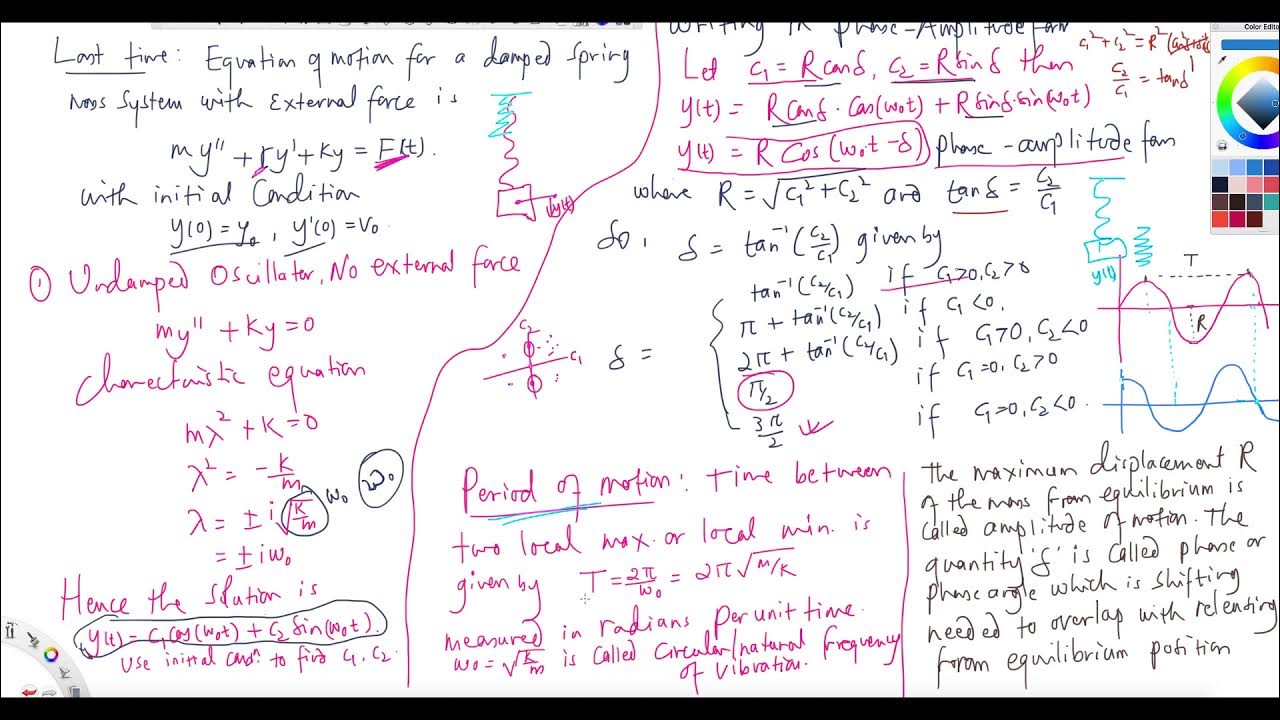 Last time: Equation of motion for a damped spring
mass system with External force is
my'' + ry' + ky = F(t).
with initial Condition
y(0) = y₀, y'(0) = v₀
① Undamped Oscillator, No external force
my'' + ky = 0
Charecteristic equation
mλ² + k = 0
λ² = -k/m
λ = ± i√(k/m) ω₀ ω₀
= ± iω₀
Hence the solution is
y(t) = c₁cos(ω₀t) + c₂ sin(ω₀t).
Use initial condⁿ to find c₁, c₂.
writing in phase-Amplitude form
Let c₁ = R cosδ, c₂ = R sinδ then
y(t) = R cosδ · cos(ω₀t) + R sinδ · sin(ω₀t)
y(t) = R Cos(ω₀t - δ) phase-amplitude form
where R = √(c₁² + c₂²) and tanδ = c₂/c₁
So, δ = tan⁻¹(c₂/c₁) given by
δ =
tan⁻¹(c₂/c₁) if c₁>0, c₂>0
π + tan⁻¹(c₂/c₁) if c₁<0,
2π + tan⁻¹(c₂/c₁) if c₁>0, c₂<0
π/2 if c₁=0, c₂>0
3π/2 if c₁=0, c₂<0.
c₂
c₁
Period of motion: Time between
two local max. or local min. is
given by T = 2π/ω₀ = 2π√(m/k)
measured in radians per unit time.
ω₀ = √(k/m) is called Circular/natural frequency
of vibration.
c₁² + c₂² = R²
c₂/c₁ = tanδ
Color Edito
y(t)
y(t)
T
R
The maximum displacement R
of the mass from equilibrium is
called amplitude of motion. The
quantity 'δ' is called phase or
phase angle which is shifting
needed to overlap with releasing
from equilibrium position